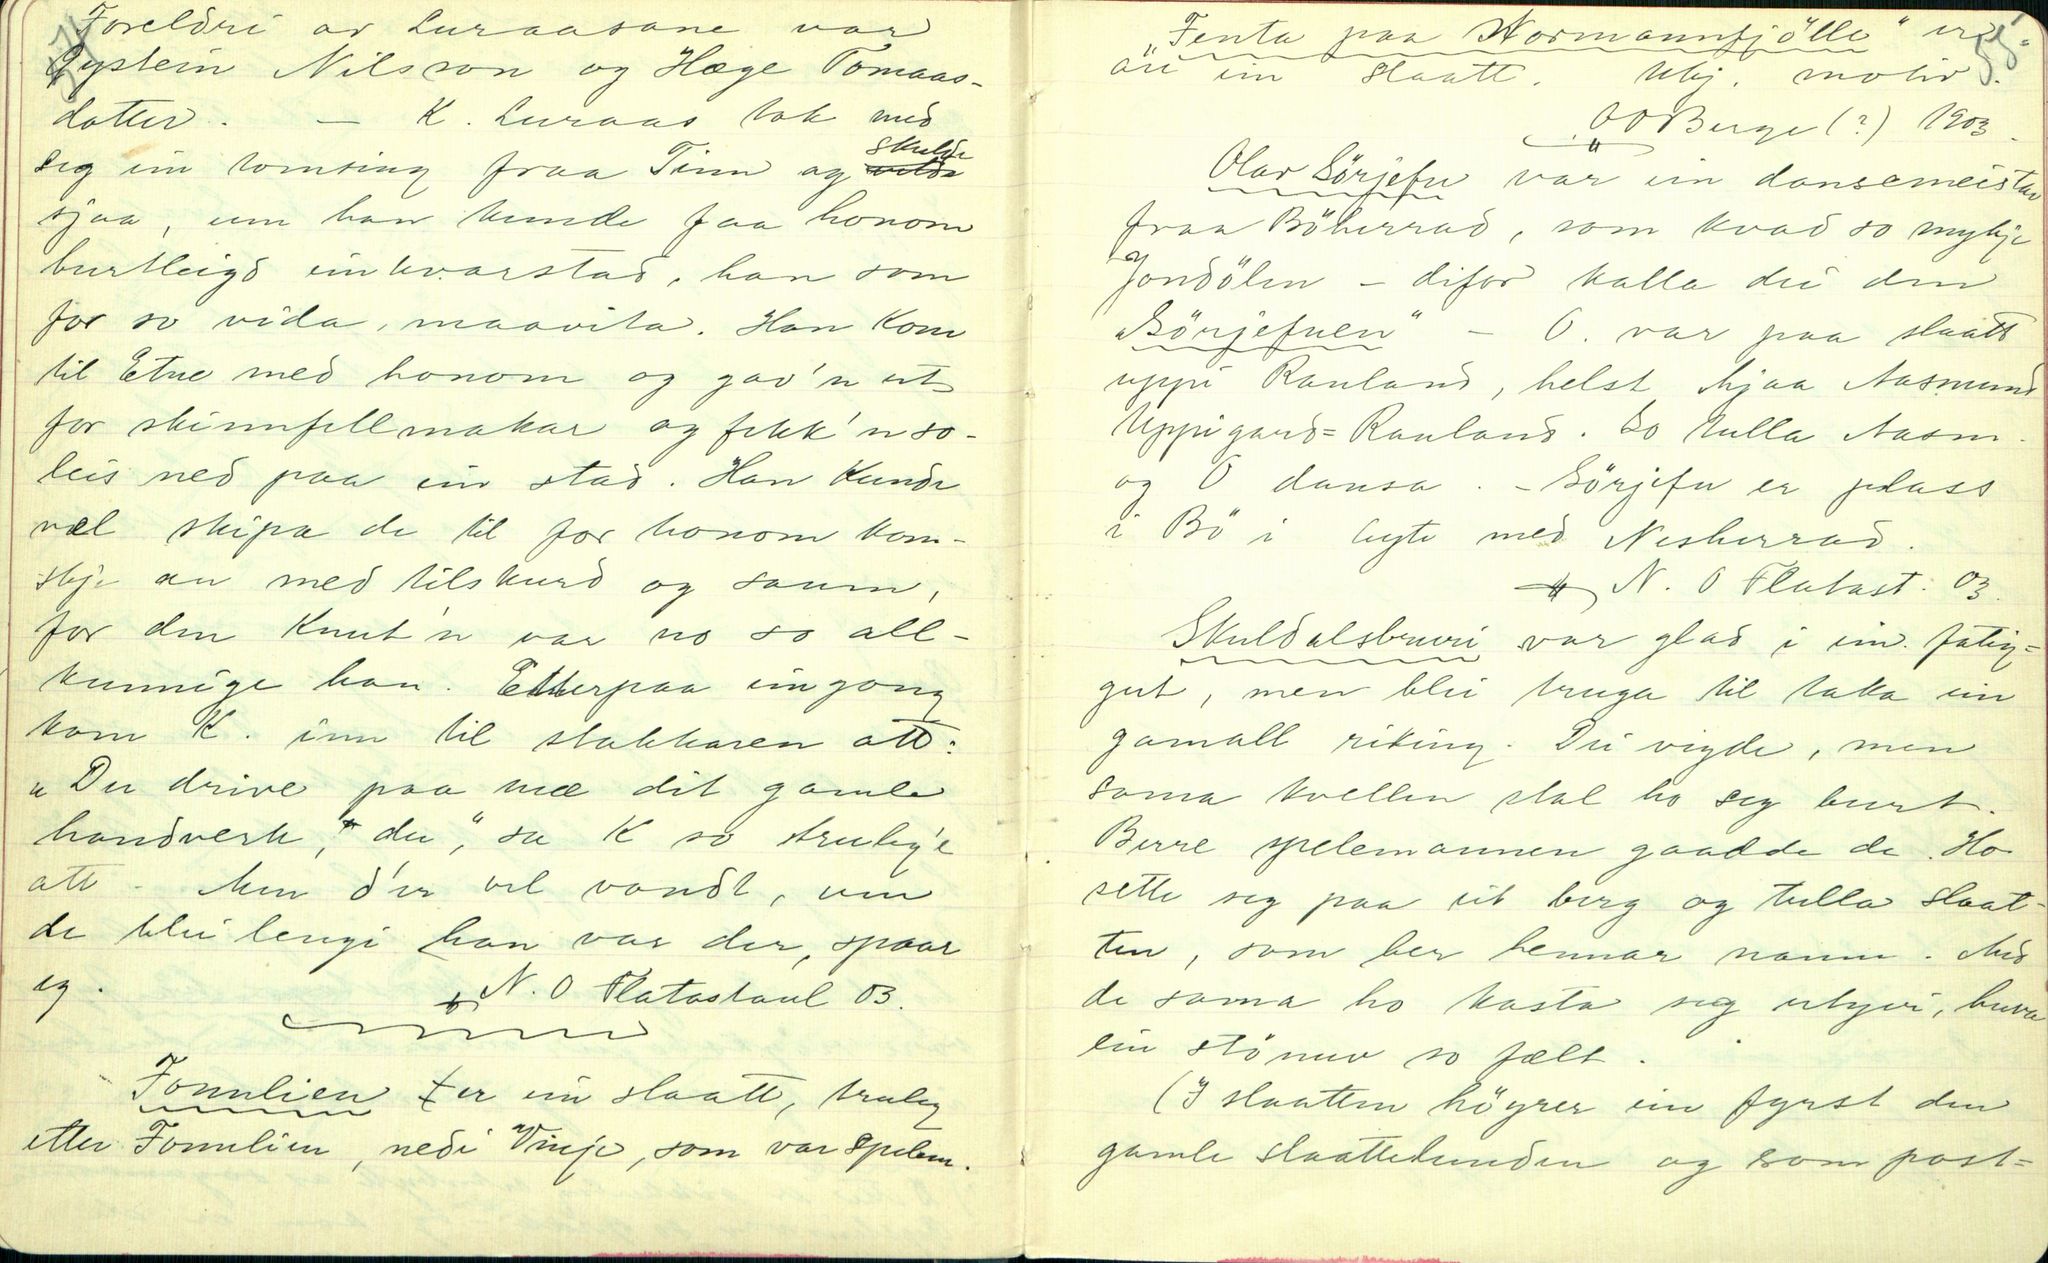 Foreldri av Luraasane var
Øystein Nilsson og Hæge Tomaas-
dotter. — K. Luraas tok med
seg ein tomsing fraa Tinn og skulde
sjaa, um han kunde faa honom
burtleigd einkvarstad, han som
for so vida, maavita. Han kom
til Etne med honom og gav'n ut
for skinnfellmakar og fekk'n so-
leis ned paa ein stad. Han kunde
vel skipa de til for honom kom-
skje au med tilskurd og saum,
for den Knut'n var no so all-
kunnige han. Etterpaa ein gong
kom K. inn til stakkaren att:
„Du drive paa mæ dit gamle
handverk, du", sa K so truleg'e
att. Men d'er vel vandt, um
de blei lengi han var der, spaar
eg.
N. O Flatastaul 03.
Fonnlien er ein slaatt, truleg
etter Fonnlien, nedi Vinje, som var spelem.
55
„Fenta paa Normannfjølle" er
au ein slaatt. Ukj. motiv.
O O Berge (?) 1903.
Olav Sørjefn var ein dansemeistar
fraa Bøherrad, som kvad so mykje
Jondølen – difor kalla dei den
„Sørjefnen" – O. var paa slaatt
uppi Rauland, helst hjaa Aasmund
Uppigard-Rauland. So tulla Aasm.
og O dansa. – Sørjefn er plass
i Bø i leyte med Nesherrad.
N. O Flatast. 03.
Skuldalsbruri var glad i ein fatig-
gut, men blei truga til taka ein
gamall riking. Dei vigde, men
sama kvellen stal ho seg burt.
Berre spelemannen gaadde de. Ho
sette seg paa eit berg og tulla slaat-
ten, som ber hennar namn. Med
de sama ho kasta seg utyvi, huva
ein stønuv so fælt.
(I slaatten høyrer ein fyrst den
gamle slaattekunden og som post-